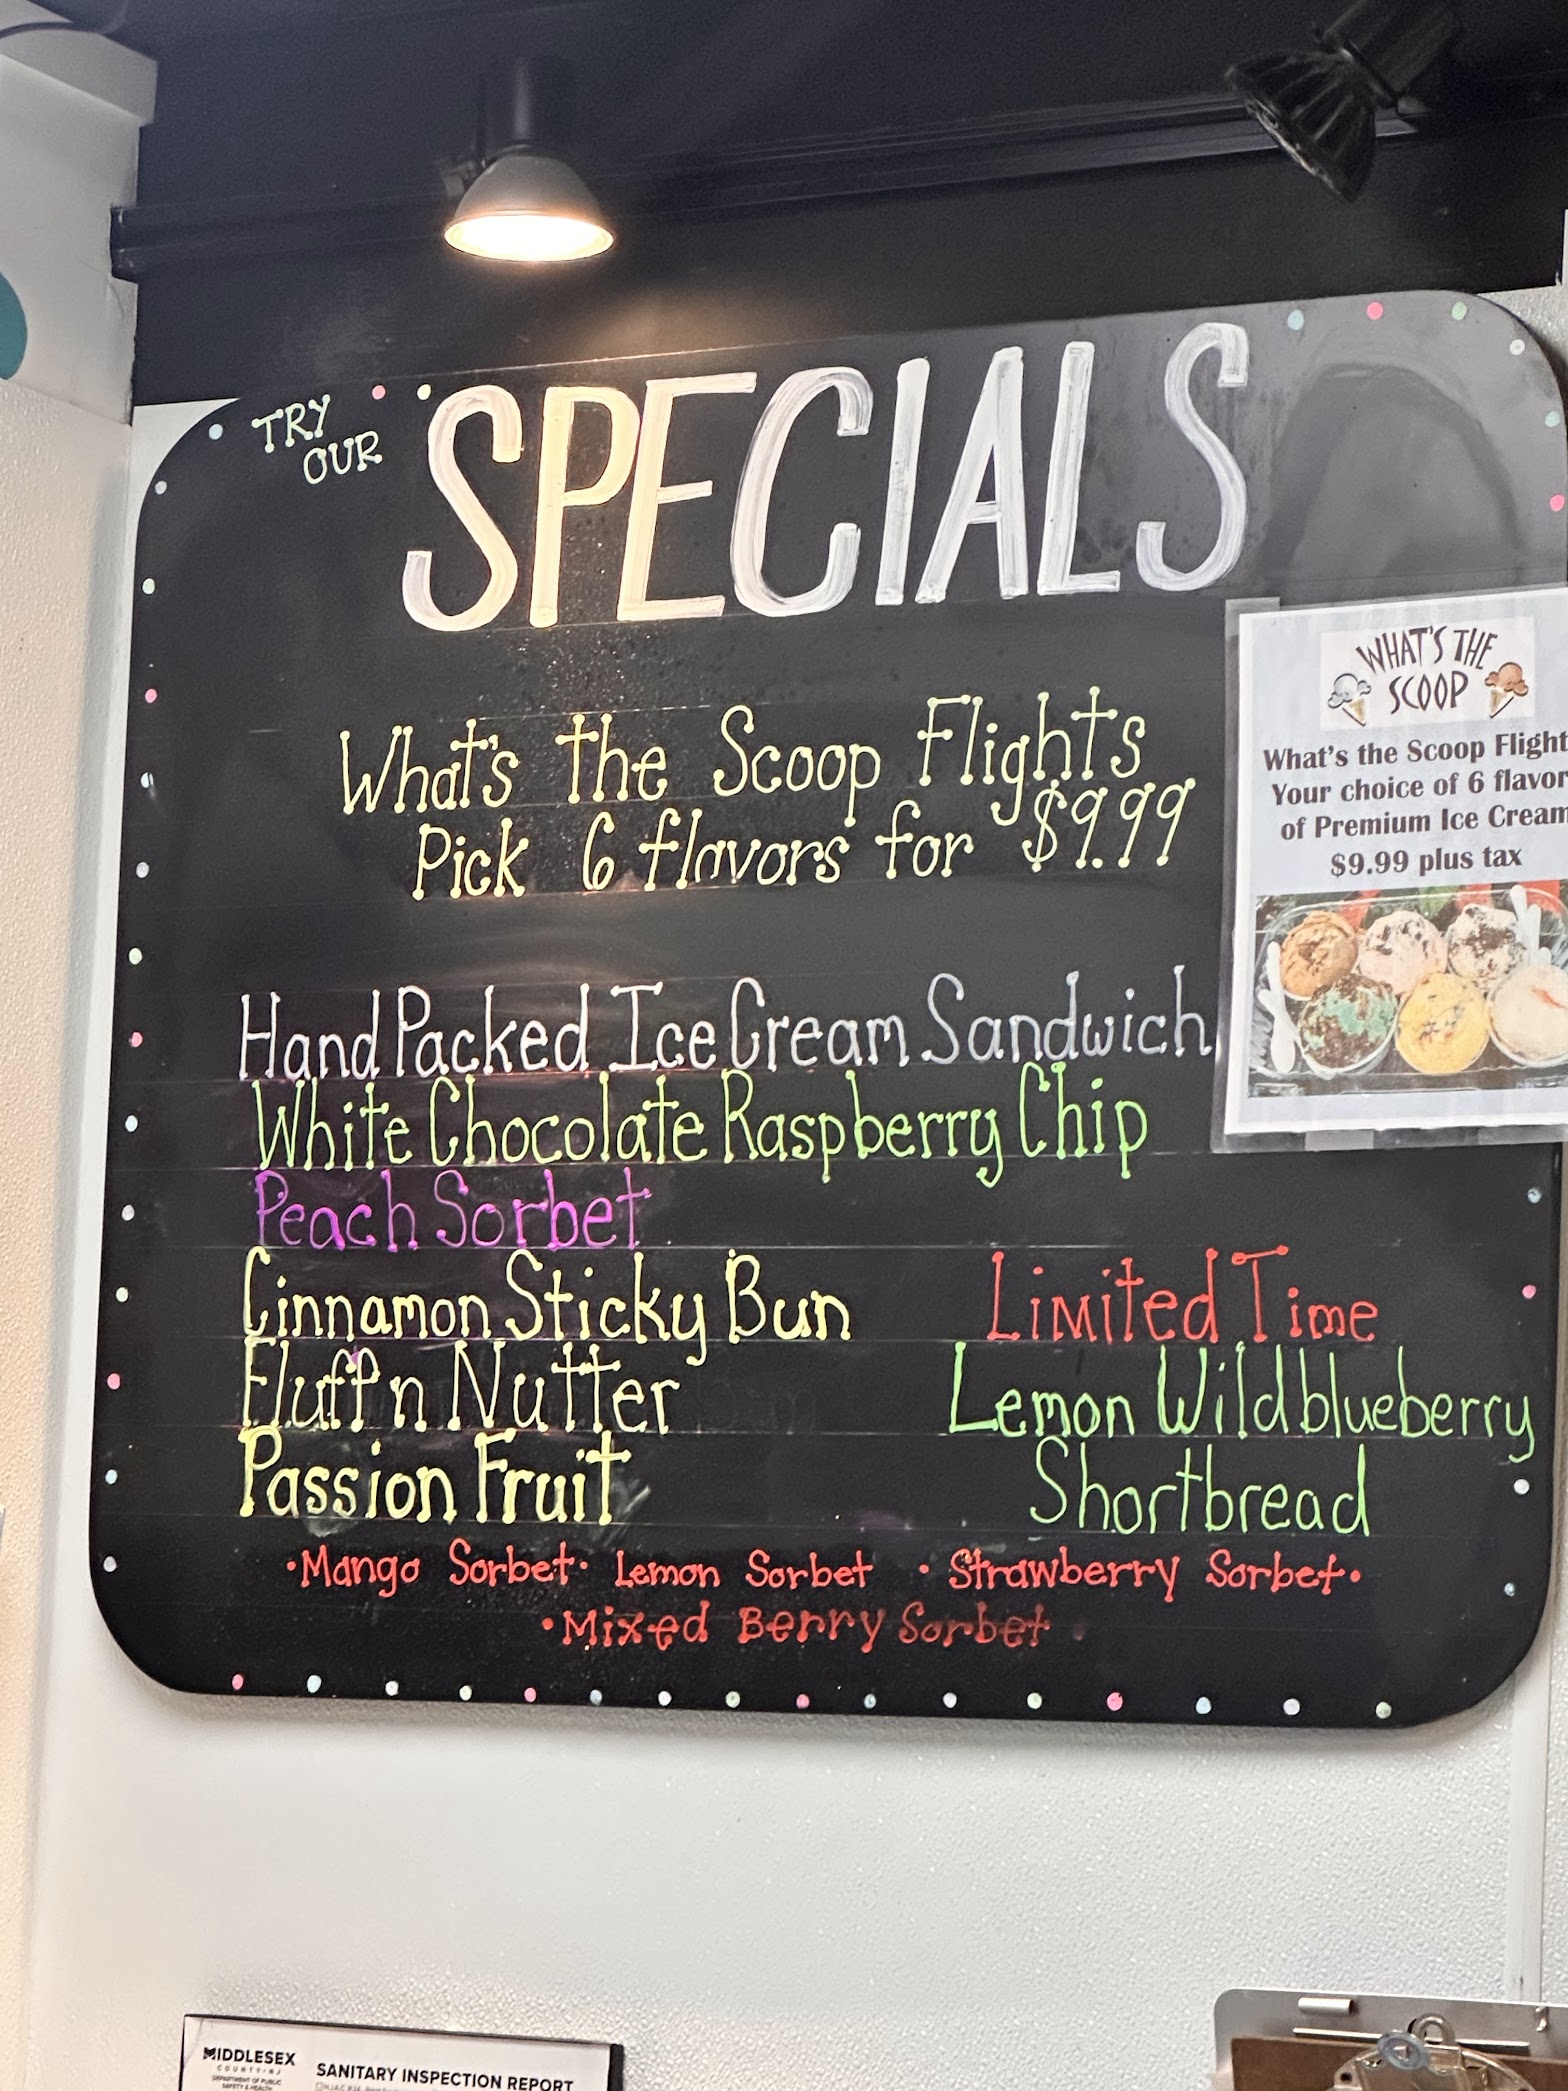 TRY
OUR
SPECIALS
What's the Scoop Flights
Pick 6 flavors for $9.99
Hand Packed Ice Cream Sandwich
White Chocolate Raspberry Chip
Peach Sorbet
Cinnamon Sticky Bun
Fluff n Nutter
Passion Fruit
Limited Time
Lemon Wildblueberry
Shortbread
•Mango Sorbet• Lemon Sorbet • Strawberry Sorbet•
•Mixed Berry Sorbet•
WHAT'S THE
SCOOP
What's the Scoop Flight
Your choice of 6 flavor
of Premium Ice Cream
$9.99 plus tax
MIDDLESEX
COUNTY • NJ
DEPARTMENT OF PUBLIC
SAFETY & HEALTH
SANITARY INSPECTION REPORT